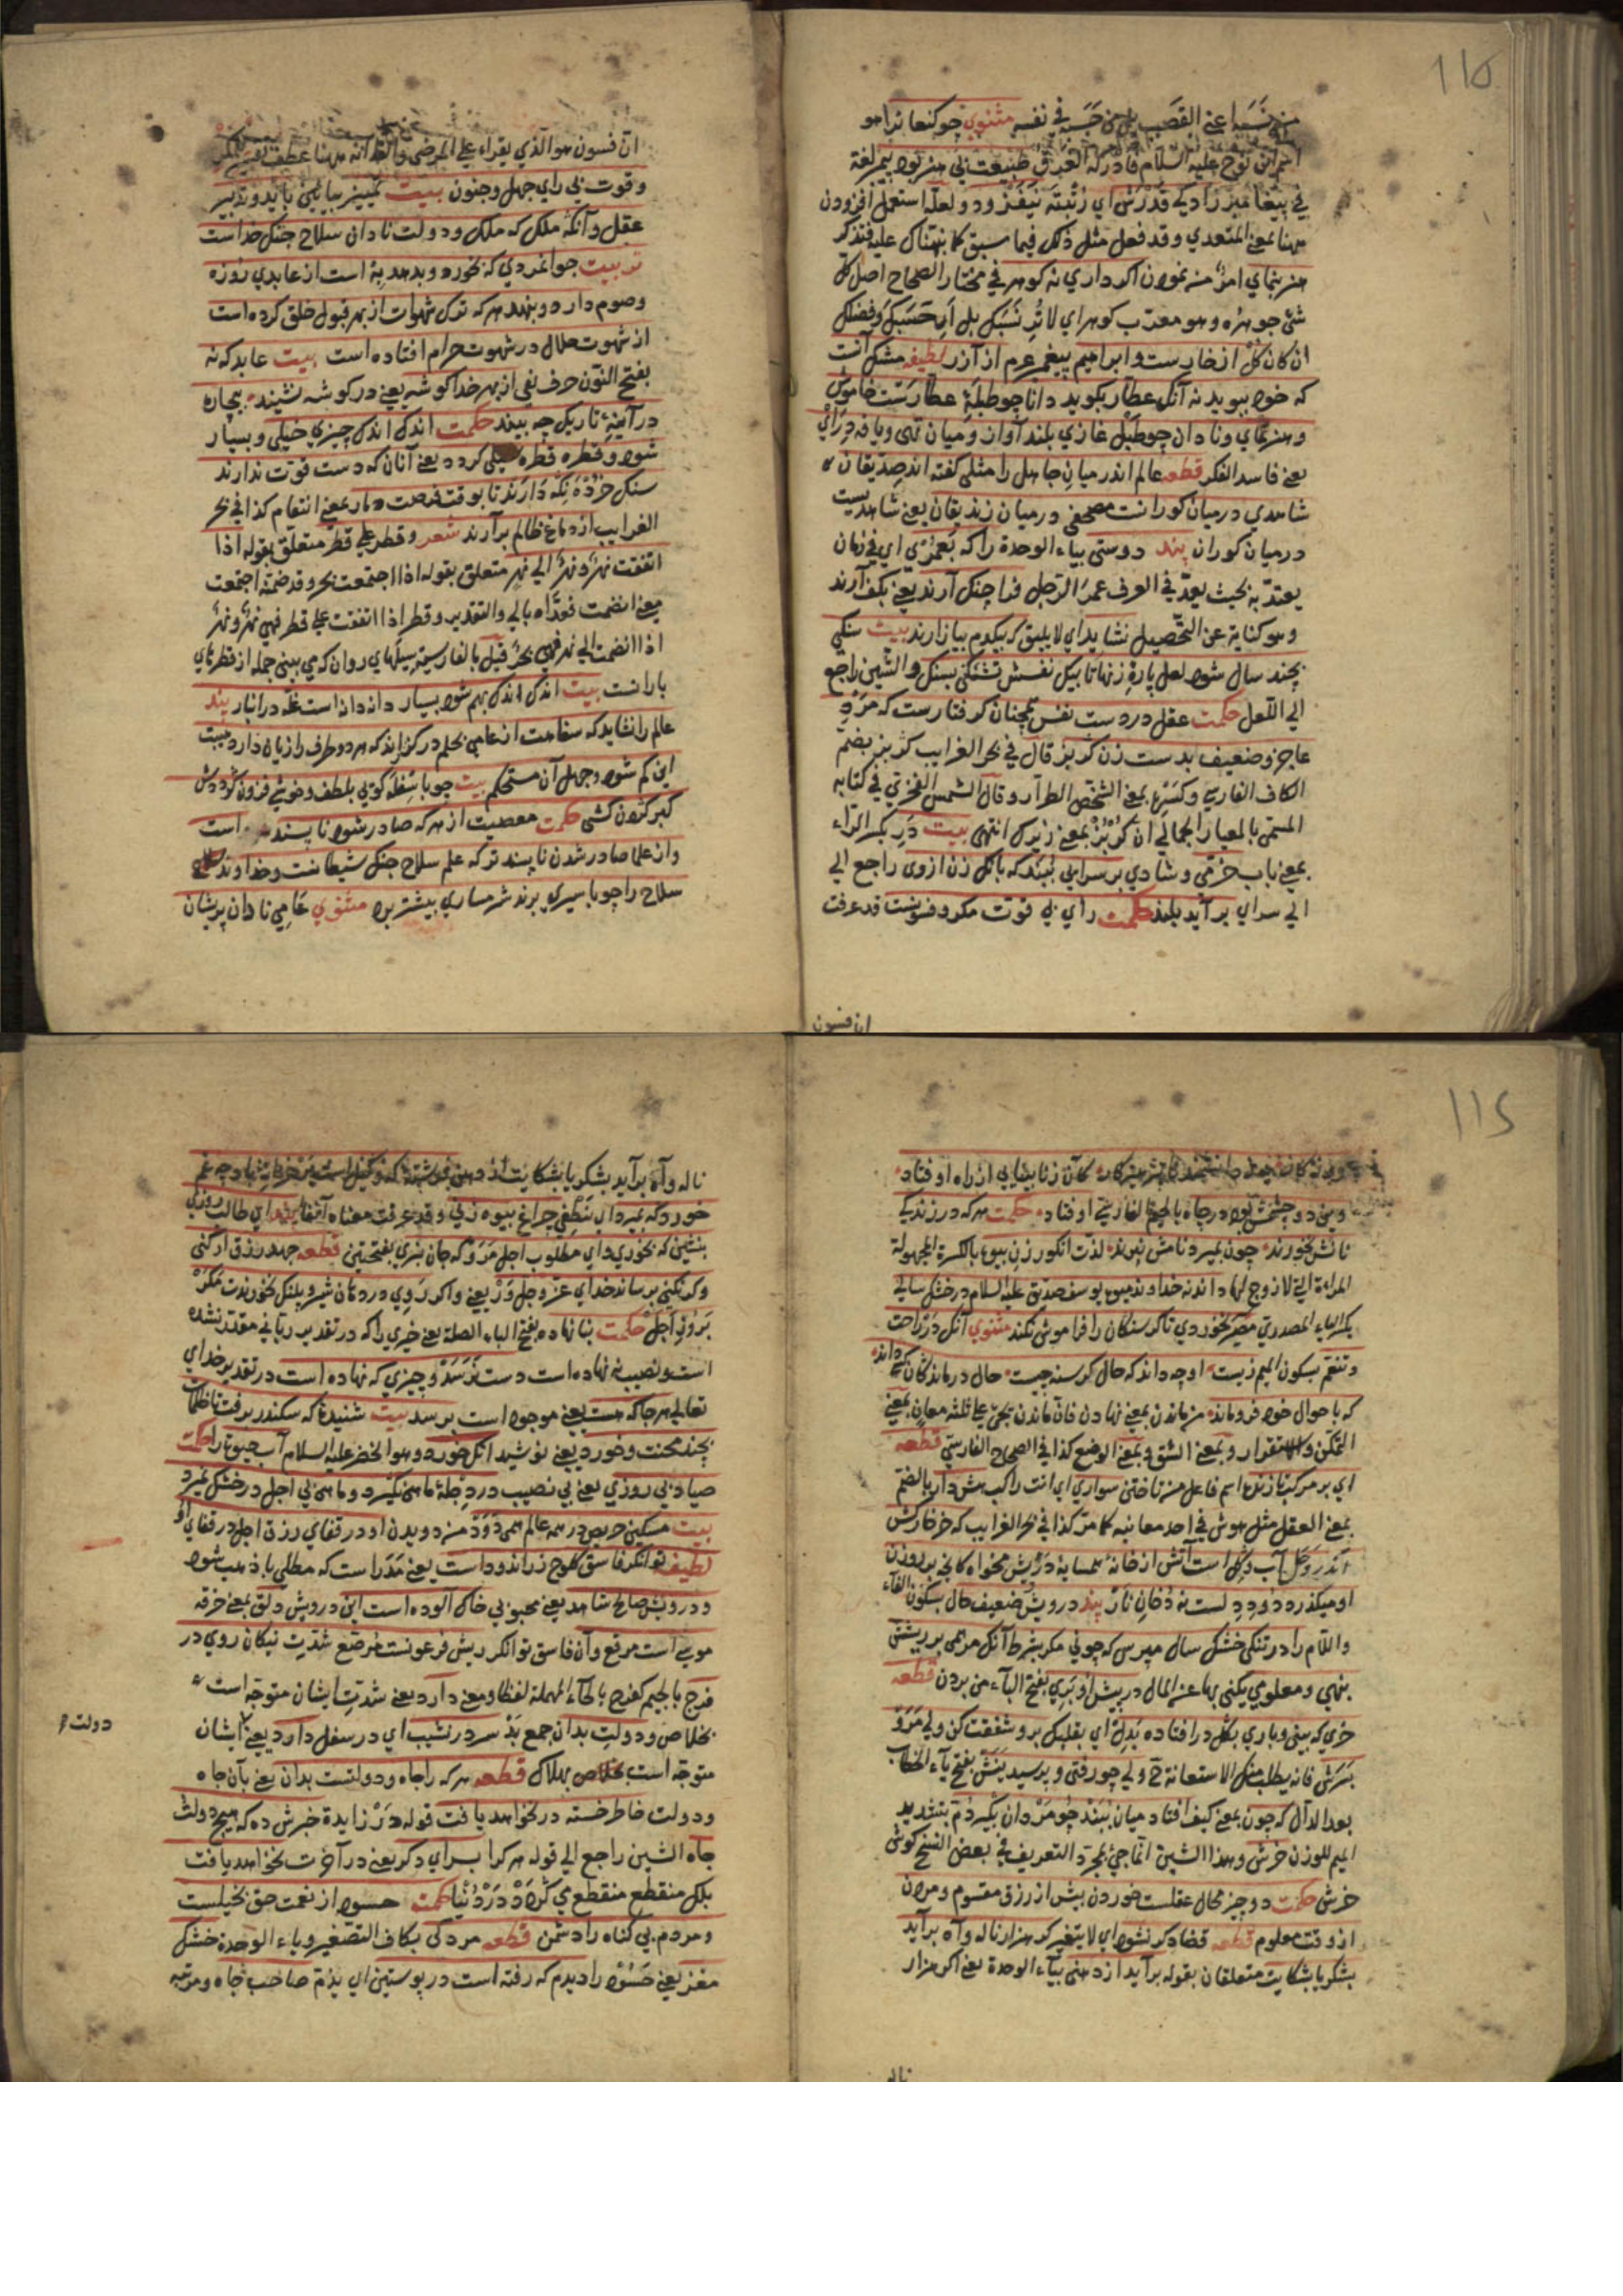 115
في نفسه مثنوي چو كنعانرا
نوح عليه السلام طبيعت بي هنر بود بمر لغة
في پيغامبر زاديكي قدرش اي رتبته نيفزود ولعله استعمل افزودن
ههنا بمعني المتعدي وقد فعل مثل ذلك فيما سبق كما نبهناك عليه فتذكر
هنر بنماي امر من نمودن اكر داري نه كوهر في مختار الصحاح اصل كل
شئ جوهره وهو معرب كوهر اي لا تُرِ نسبك بل أرِ حسبك وفضلك
ان كان كل از خارست وابراهيم پيغمبر عم از آزر لطيفه مشك آنست
كه خود ببويد نه آنكه عطار بكويد دانا چو طبلهٔ عطارست خاموش
وهنرنماي ونادان چو طبل غازي بلند آواز وميان تهى ويافه دراي
يعني فاسد الفكر قطعه عالم اندر ميان جاهل را مثلي كفته اند صديقان
شاهدي درميان كورانست مصحفي درميان زنديقان يعني شاهديست
درميان كوران پند دوستى بياء الوحدة را كه بعمرى اي في زمان
يعتد به بحيث يعد في العرف عمر الرجل فراچنك آرند يعني بكف آرند
وهو كناية عن التحصيل نشايد اي لا يليق كه بيكدم بيازارند بيت سنكي
بچند سال شود لعل پارهٔ زنهار تا بيك نفسش نشكنى بسنك والشين راجع
الي اللعل حكمت عقل در دست نفس همچنان كرفتارست كه مردِ
عاجز وضعيف بدست زن كربز قال في بحر الغرايب كربز بضم
الكاف الفارسي وكسرها بمعني الشخص الطرار وقال الشمس الفخري في كتابه
المسمى بالمعيار الجمالي ان كربز بمعني زيرك انتهى بيت در بكسر الراء
بمعني باب خرمى وشادي بر سرايي ببند كه بانك زن از وى راجع الي
الي سراي بر آيد بلند حكمت راي بي قوت مكر وفسونست قد عرفت
ان فسون
ان فسون هو الذي يقراء علي المرضى
وقوت بي راي جهل وجنون بيت تمييز ببايد وتدبير
عقل وآنكه ملك كه ملك ودولت نادان سلاح جنك خداست
تربيت جوانمردي كه بخورد وبدهد به است از عابدي روزه
وصوم دارد وبنهد هركه ترك شهوات از بهر قبول خلق كرده است
از شهوت حلال در شهوت حرام افتاده است بيت عابد كه نه
بفتح النون حرف نفي از بهر خدا كوشه يعني در كوشه نشيند بيچاره
در آينهٔ تاريك چه بيند حكمت اندك اندك چيزي خيلى وبسيار
شود وقطره قطره سيلى كردد يعني آنان كه دست قوت ندارند
سنك خرده نكه دارند تا بوقت فرصت دمار بمعني انتقام كذا في بحر
الغرايب از دماغ ظالم برآرند شعر وقطر علي قطر متعلق بقوله اذا
اتفقت نهرٌ ونهرٌ الي نهر متعلق بقوله اذا اجتمعت بحر وقد ضمنه اجتمعت
معني انضمت فعداه بالي والتقدير وقطر اذا اتفقت علي قطر فهي نهر ونهر
اذا انضمت الي نهر فهي بحر قيل بالفارسية سيلهاي روان كه مي بينى جمله از قطرهاي
بارانست بيت اندك اندك بهم شود بسيار دانه دانه است غله در انبار پند
عالم را نشايد كه سفاهت از عامي بحلم دركزراند كه هر دو طرف را زيان دارد هيبت
اين كم شود وجهل آن مستحكم بيت چو با سفله كويي بلطف وخوشى فزون كرددش
كبر كردن كشى حكمت معصيت از هركه صادر شود ناپسند است
واز علما صادر شدن ناپسند تر كه علم سلاح جنك شيطانست وخداوند سلاح
سلاح را چو باسيري برند شرمساري بيشتر برد مثنوي عامي نادان پريشان
115
كان ز نابينايي از راه اوفتاد
وين دو چشمش بود در چاه بالجيم الفارسية اوفتاد حكمت هركه در زندكي
نانش نخورند چون بميرد نامش نبرند لذت انكور زن بيوه بالكسرة المجهولة
المراءة التي لا زوج لها داند نه خداوند ميوه يوسف صديق عليه السلام در خشك سالي
بالياء المصدري مصر نخوردي تا كرسنكان را فراموش نكند مثنوي آنكه در راحت
وتنعم بسكون الميم زيست اوچه داند كه حال كرسنه چيست حال درماندكان كسى داند
كه باحوال خود فروماند من ماندن بمعني نهادن فان ماندن يجئ علي ثلثة معان بمعني
التمكن والاستقرار وبمعني الشق وبمعني الوضع كذا في الصحاح الفارسي قطعه
اي بر مركب تازنده اسم فاعل من تاختن سواري اي انت راكب هش دار بالضم
بمعني العقل مثل هوش في احد معانيه كما مر كذا في بحر الغرايب كه خر خاركش
اندر وحل آب وكل است آتش از خانهٔ همسايهٔ درويش مخواه كانچه بر روزن
او ميكذرد دود دلست نه دخان نار پند درويش ضعيف حال بسكون الفاء
واللام را در تنكى خشك سال مپرس كه چوني مكر بشرط آنكه مرهمى بر ريشش
بنهي ومعلومي يكنى بها عن المال در پيش او بري بفتح الباء من بردن قطعه
خري كه بينى وباري بكل در افتاده بدل اي بقلبك برو شفقت كن ولي مرو
بسرش فانه يطلب منك الاستعانة ح ولي چو رفتى وپرسيديش بفتح ياء الخطاب
بعد الدال كه چون بمعني كيف افتاد ميان ببند چو مردان بكير دم بتشديد
الميم للوزن خرش وهذا الشين انما جئ بمجرد التعريف في بعض النسخ كوش
خرش حكمت دو چيز محال عقلست خوردن بيش از رزق مقسوم ومردن
از وقت معلوم قطعه قضا دكر نشود اي لا يتغير كر هزار ناله وآه برآيد
بشكر يا بشكايت متعلقان بقوله برآيد از دهنى بياء الوحدة يعني اكر هزار
ناله
ناله وآه برآيد بشكر يا بشكايت از دهنى فرشته كه وكيل است
خورد كه بميرد اي ينطفي چراغ بيوه زنى وقد عرفت معناه آنفا پند اي طالب روزي
بنشين كه بخوري واي مطلوب اجل مرو كه جان نبري بفتحتين قطعه جهد رزق ار كنى
وكر نكنى برساند خداي عز وجل ور يعني واكر روي در دهان شير وپلنك نخورندت مكر
بروز اجل حكمت بنا نهاده بفتح الباء الصلة يعني خيري را كه در تقدير رباني مقدر نشده
است ونصيب نه نهاده است دست نرسد وچيزي كه نهاده است در تقدير خداي
تعالي هرجا كه هست يعني موجود است برسد بيت شنيدهٔ كه سكندر برفت تا ظلمات
بچند محنت وخورد يعني نوشيد آنكه خورد وهو الخضر عليه السلام آب حيوة را حكمت
صياد بي روزي يعني بي نصيب در دجله ماهى نكيرد وماهى بي اجل در خشك نميرد
بيت مسكين حريص در همه عالم همى دود من دويدن او در قفاي رزق اجل در قفاي او
لطيفه توانكر فاسق كلوخ زر اندود است يعني مدر است كه مطلي بالذهب شود
ودرويش صالح شاهد يعني محبوبي خاك آلوده است اين درويش دلق بمعني خرقه
موسى است مرقع وآن فاسق توانكر ريش فرعونست مرصع شدت نيكان روي در
فرج بالجيم كفرح بالحاء المهملة لفظا ومعني دارد يعني شدت ايشان متوجه است
بخلاص ودولت بدان جمع بد سر در نشيب اي در سفل دارد يعني ايشان
دولت
متوجه است بهلاك قطعه هركه را جاه ودولتست بدان يعني بآن جاه
ودولت خاطر خسته در نخواهد يافت قوله در زايدة خبرش ده كه هيچ دولت
جاه الشين راجع الي قوله هركرا بسراي دكر يعني در آخرت نخواهد يافت
بلكه منقطع منقطع مي كردد در دنيا حكمت حسود از نعمت حق بخيلست
ومردم بي كناه را دشمن قطعه مردكى بكاف التصغير وياء الوحدة خشك
مغز يعني حسود را ديدم كه رفته است در پوستين اي يذم صاحب جاه ومرتبه